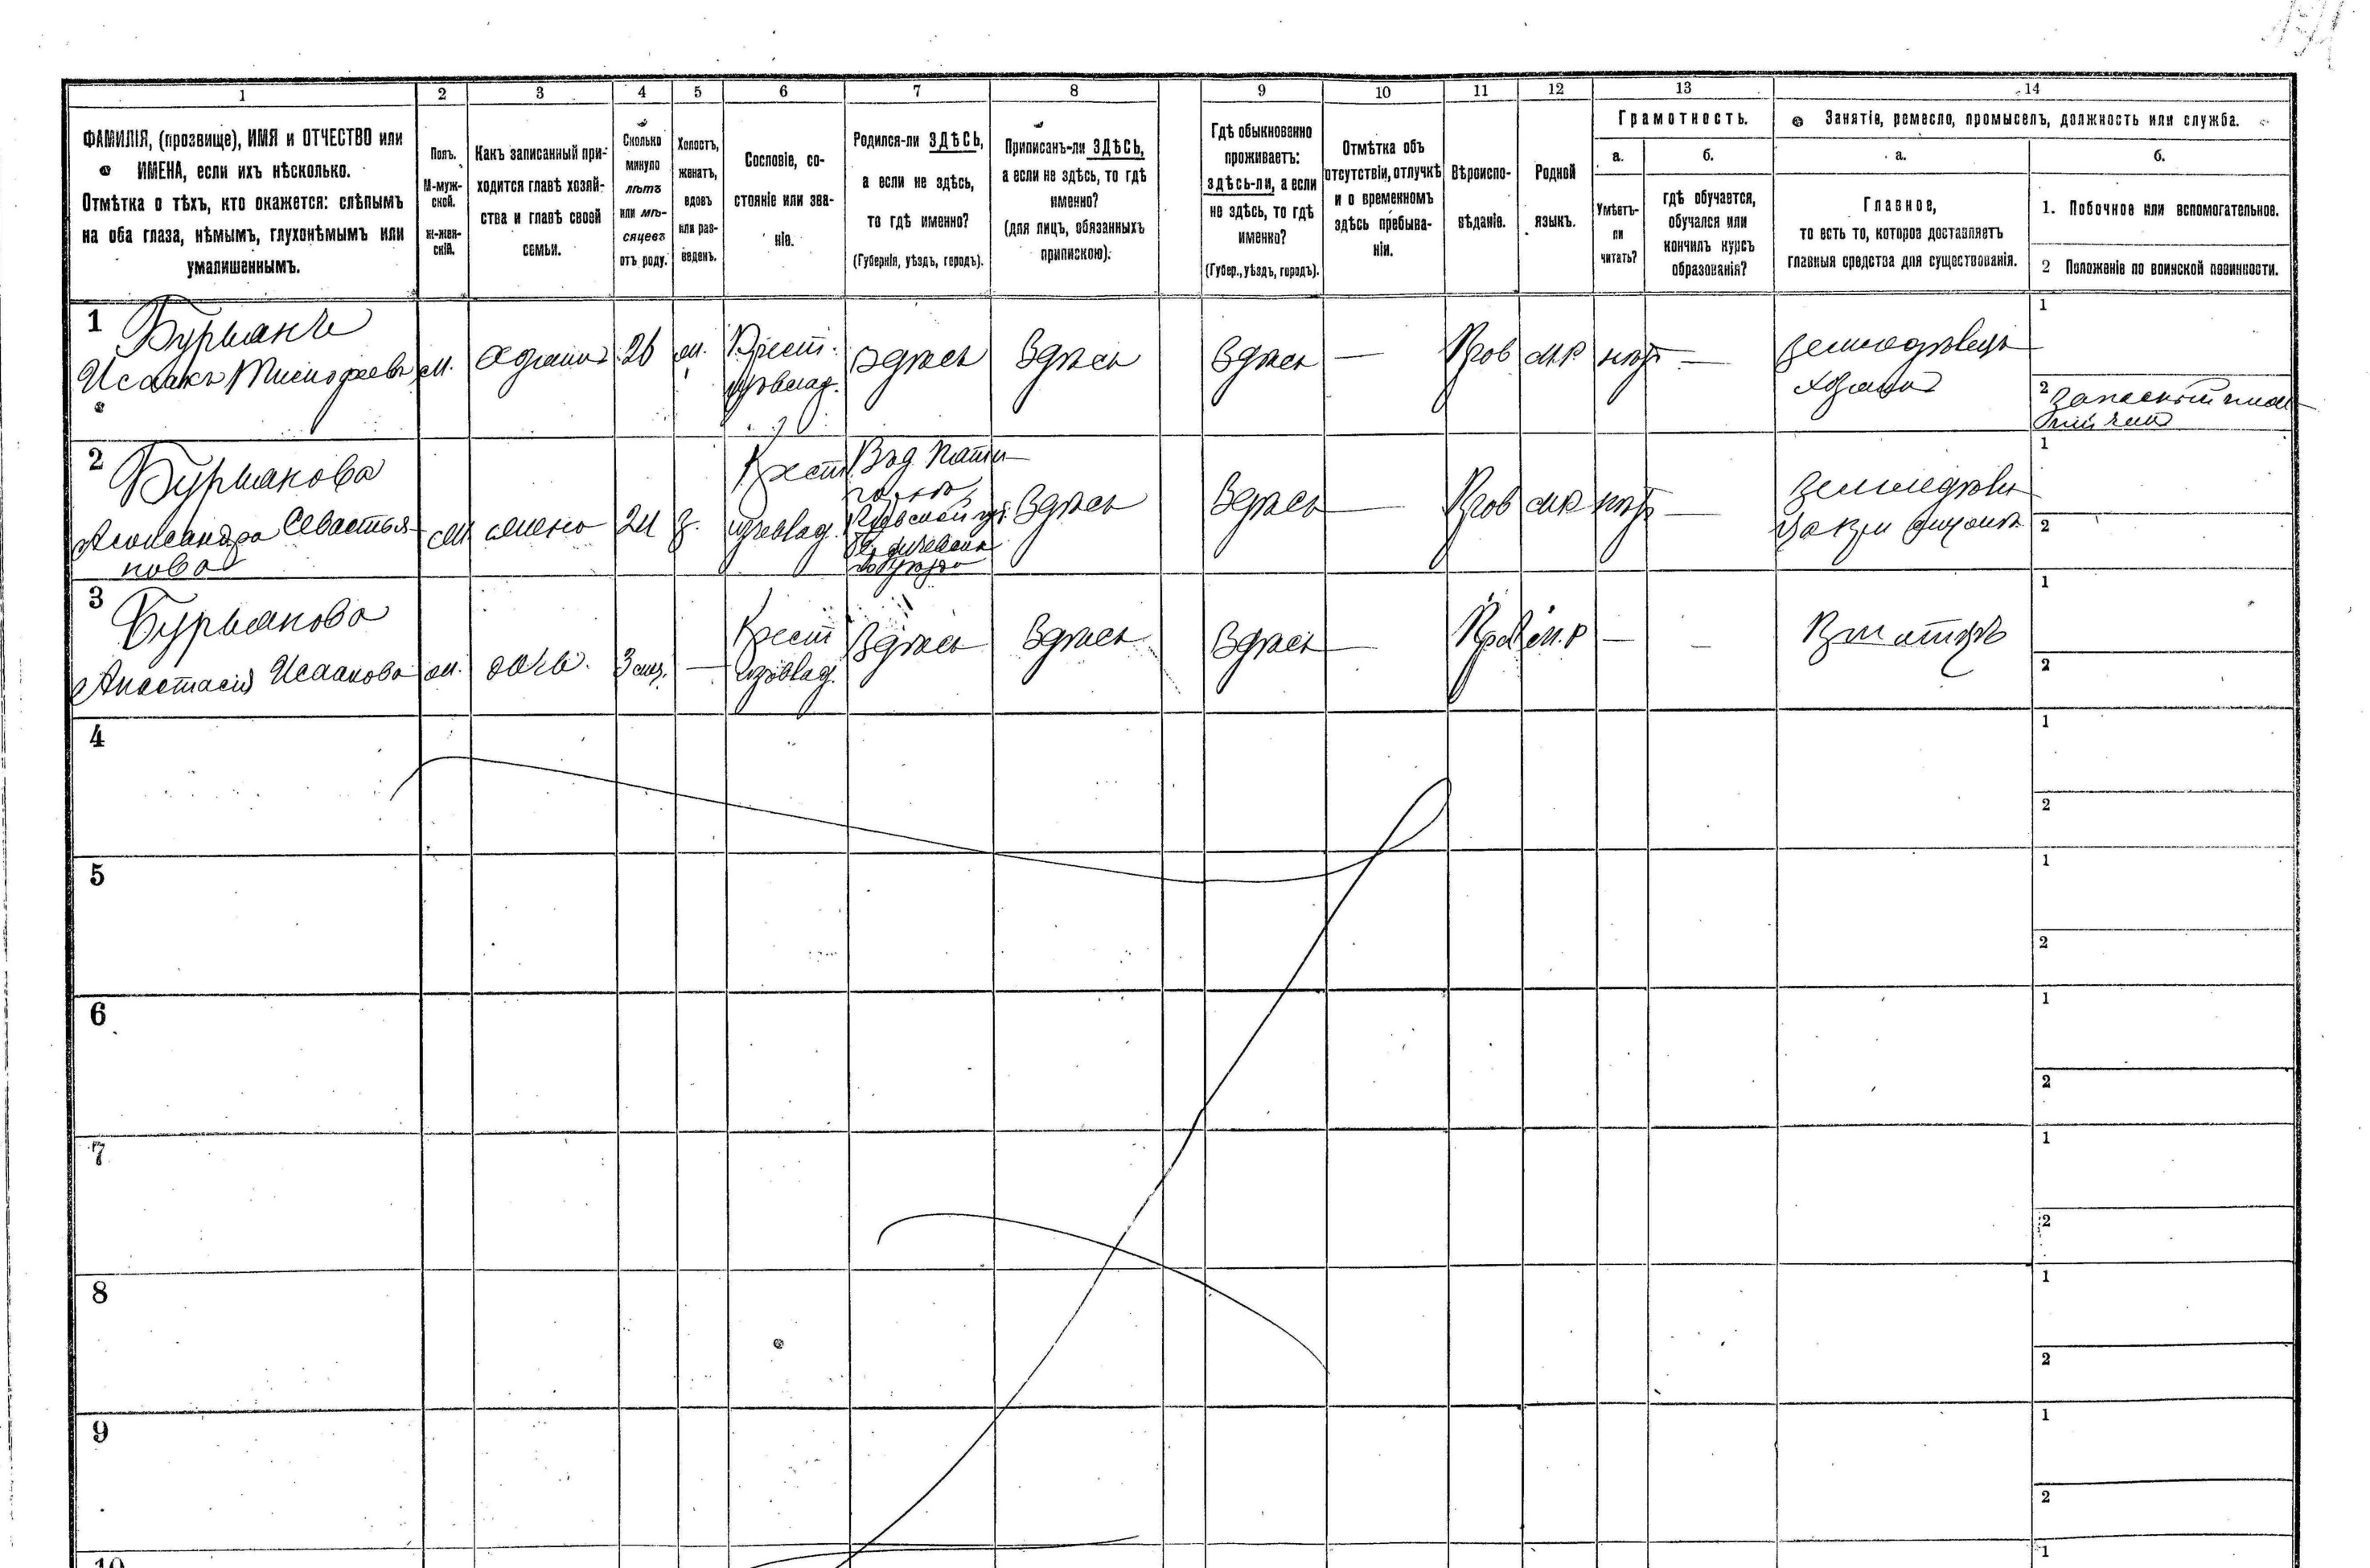 1 2 3 4 5 6 7 8 9 10 11 12 13 14
ФАМИЛІЯ, (прозвище), ИМЯ и ОТЧЕСТВО или
ИМЕНА, если ихъ нѣсколько.
Отмѣтка о тѣхъ, кто окажется: слѣпымъ
на оба глаза, нѣмымъ, глухонѣмымъ или
умалишеннымъ.
Полъ.
М-муж-
ской.
ж-жен-
скій.
Какъ записанный при-
ходится главѣ хозяй-
ства и главѣ своей
семьи.
Сколько
минуло
лѣтъ
или мѣ-
сяцевъ
отъ роду.
Холостъ,
женатъ,
вдовъ
или раз-
веденъ.
Сословіе, со-
стояніе или зва-
ніе.
Родился-ли ЗДѢСЬ,
а если не здѣсь,
то гдѣ именно?
(Губернія, уѣздъ, городъ).
Приписанъ-ли ЗДѢСЬ,
а если не здѣсь, то гдѣ
именно?
(для лицъ, обязанныхъ
припискою).
Гдѣ обыкновенно
проживаетъ:
здѣсь-ли, а если
не здѣсь, то гдѣ
именно?
(Губер., уѣздъ, городъ).
Отмѣтка объ
отсутствіи, отлучкѣ
и о временномъ
здѣсь пребыва-
ніи.
Вѣроиспо-
вѣданіе.
Родной
языкъ.
Грамотность.
а.
Умѣетъ-
ли
читать?
б.
гдѣ обучается,
обучался или
кончилъ курсъ
образованія?
Занятіе, ремесло, промыселъ, должность или служба.
а.
Главное,
то есть то, которое доставляетъ
главныя средства для существованія.
б.
1. Побочное или вспомогательное.
2 Положеніе по воинской повинности.
1 Бурманъ
Исаакъ м. 26 Крест. Здѣсь Здѣсь Здѣсь — Прав м.р нѣтъ —
хозяинъ
1
2
2 Бурманова
Александра Севастья-
нова жена 24 з. Крест Здѣсь Здѣсь — Прав м.р нѣтъ —
1
2
3 Бурманова
Анастасія Исаакова дочь. 3 — Крест Здѣсь Здѣсь Здѣсь — Прав м.р — —
1
2
4
1
2
5
1
2
6
1
2
7
1
2
8
1
2
9
1
2
10
1